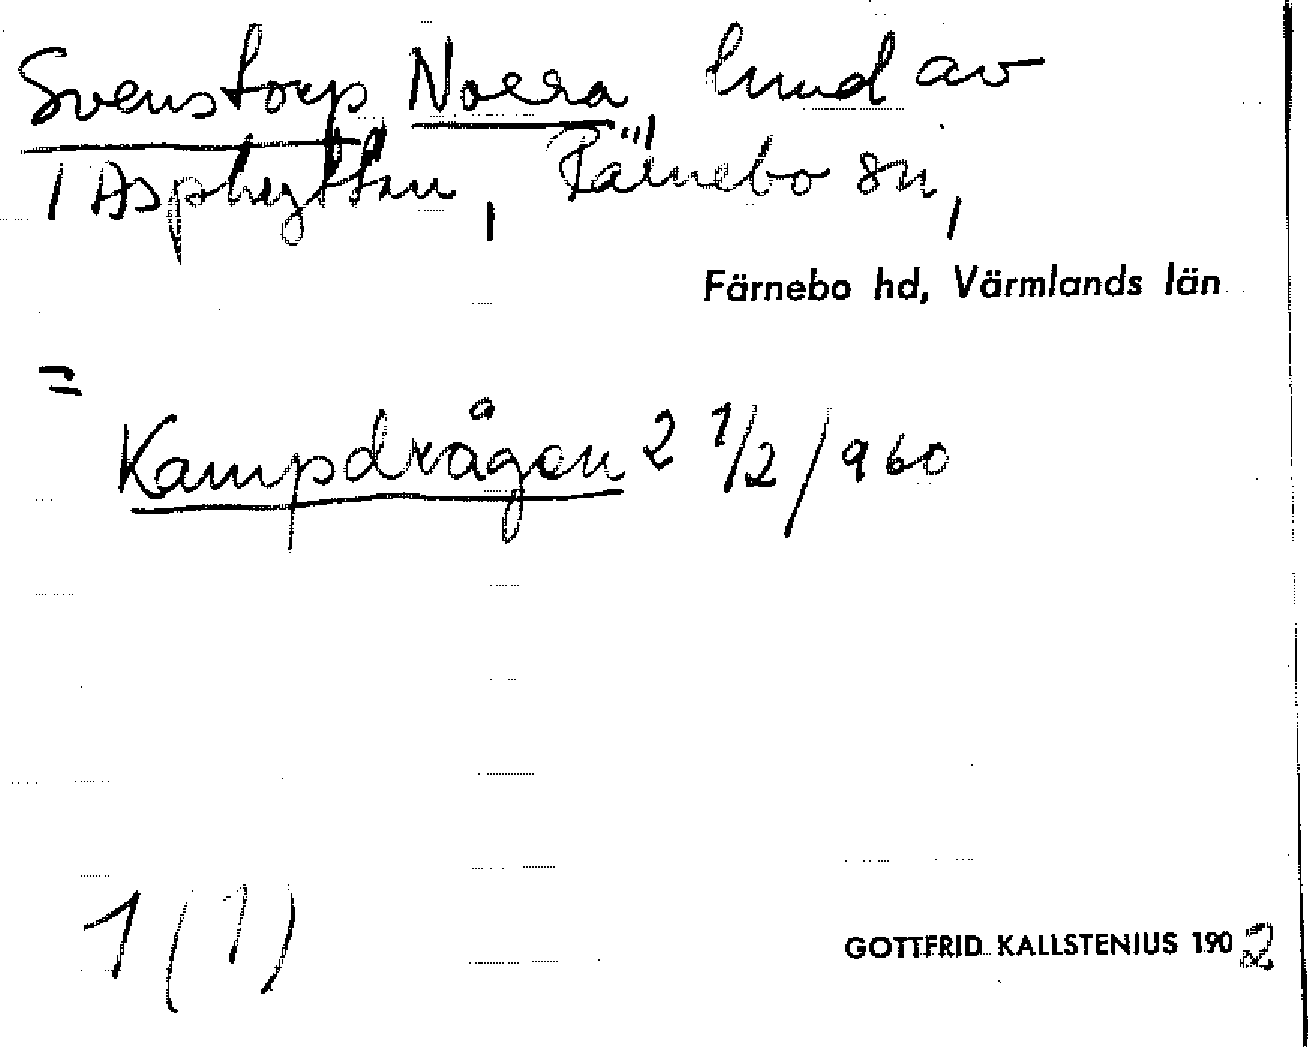 Svenstorp Norra, lund av
1 Asphyttan, Färnebo sn,
Färnebo hd, Värmlands län
=
Kampdrågen 2 1/2 / 960
1 (1)
GOTTFRID KALLSTENIUS 1902